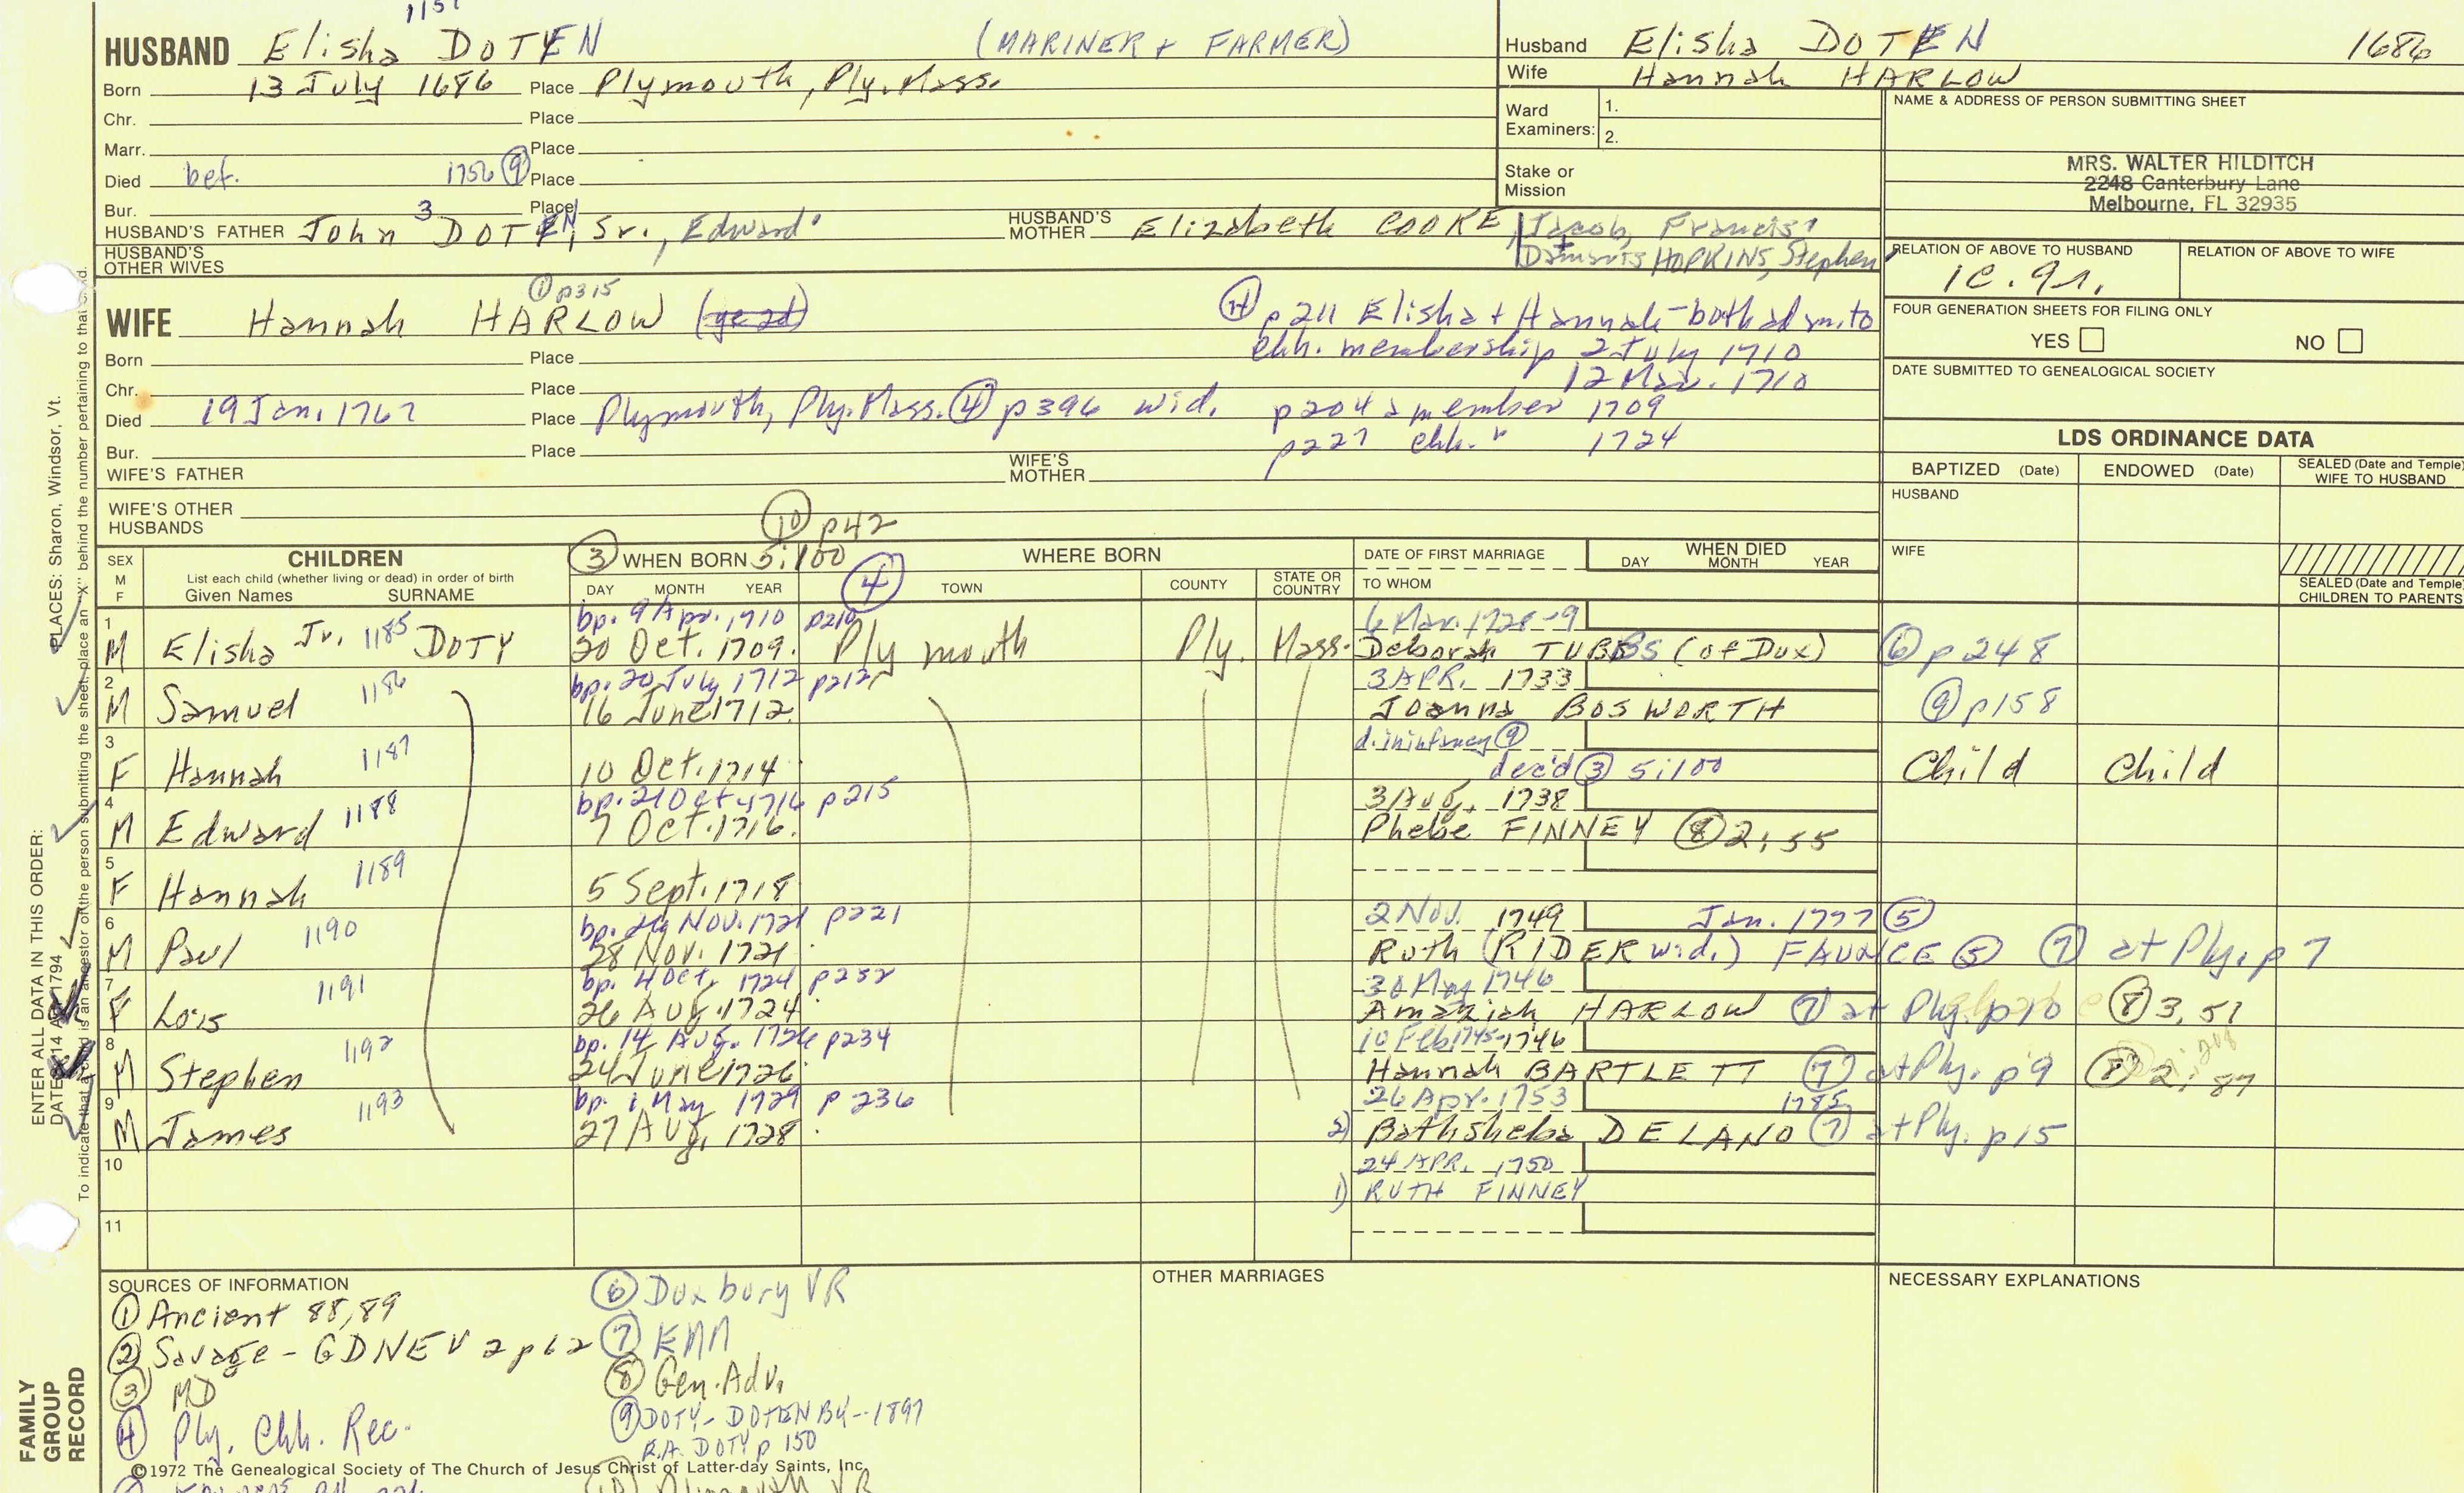 1151
HUSBAND Elisha DOTEN (MARINER + FARMER)
Born 13 July 1686 Place Plymouth, Ply. Mass.
Chr. Place
Marr. Place
Died bef. 1756 ⑨ Place
Bur. Place
HUSBAND'S FATHER John 3 DOTEN, Sr., Edward' HUSBAND'S MOTHER Elizabeth COOKE, Jacob, Francis'
Damaris HOPKINS, Stephen
HUSBAND'S OTHER WIVES
① p315
WIFE Hannah HARLOW
④ p211 Elisha + Hannah - both adm. to
chh. membership 2 July 1710
12 Mar. 1710
Born Place
Chr. Place
Died 19 Jan. 1767 Place Plymouth, Ply. Mass. ④ p396 wid. p204 a member 1709
p227 chh. " 1724
Bur. Place
WIFE'S FATHER WIFE'S MOTHER
WIFE'S OTHER HUSBANDS
⑩ p42
Husband Elisha DOTEN 1686
Wife Hannah HARLOW
Ward Examiners: 1.
2.
Stake or Mission
NAME & ADDRESS OF PERSON SUBMITTING SHEET
MRS. WALTER HILDITCH
2248 Canterbury Lane
Melbourne, FL 32935
RELATION OF ABOVE TO HUSBAND RELATION OF ABOVE TO WIFE
1c. 9r.
FOUR GENERATION SHEETS FOR FILING ONLY
YES NO
DATE SUBMITTED TO GENEALOGICAL SOCIETY
LDS ORDINANCE DATA
BAPTIZED (Date) ENDOWED (Date) SEALED (Date and Temple) WIFE TO HUSBAND
HUSBAND
WIFE
SEALED (Date and Temple) CHILDREN TO PARENTS
SEX M F
CHILDREN
List each child (whether living or dead) in order of birth
Given Names SURNAME
③ WHEN BORN 5:100
DAY MONTH YEAR
④
WHERE BORN
TOWN COUNTY STATE OR COUNTRY
DATE OF FIRST MARRIAGE
TO WHOM
WHEN DIED
DAY MONTH YEAR
1 bp. 9 Apr. 1710 p210 6 Mar. 1728-9
M Elisha Jr. 1185 DOTY 20 Oct. 1709. Plymouth Ply. Mass. Deborah TUBBS (of Dux) ⑥ p248
2 bp. 20 July 1712 p212 3 APR. 1733
M Samuel 1186 16 June 1712 Joanna BOSWORTH ⑨ p158
3 d. in infancy ⑨
F Hannah 1187 10 Oct. 1714 dec'd ③ 5:100 Child Child
4 bp. 21 Oct 1716 p215 3 Aug. 1738
M Edward 1188 7 Oct. 1716. Phebe FINNEY ⑧ 2:55
5
F Hannah 1189 5 Sept. 1718
6 bp. Nov. 1721 p221 2 Nov. 1749 Jan. 1777 ⑤
M Paul 1190 28 Nov. 1721 Ruth (RIDER wid.) FAUNCE ⑤ ⑦ at Ply. p7
7 bp. 4 Oct. 1724 p232 30 May 1746
F Lois 1191 26 Aug. 1724 Amaziah HARLOW ⑦ at Ply. p10 ⑧ 3, 51
8 bp. 14 Aug. 1726 p234 10 Feb 1745-1746
M Stephen 1192 24 June 1726 Hannah BARTLETT ⑦ at Ply. p9 ⑧ 2: 87
9 bp. 1 May 1729 p236 26 Apr. 1753 1785
M James 1193 27 Aug. 1728 2) Bathsheba DELANO ⑦ at Ply. p15
10 24 APR. 1750
1) RUTH FINNEY
11
SOURCES OF INFORMATION
① Ancient 88,89
② Savage - GDNE V 2 p62
③ MD
④ Ply. Chh. Rec.
⑥ Duxbury VR
⑦ EMM
⑧ Gen. Adv.
⑨ DOTY - DOTEN BK - 1897
E.A. DOTY p 150
⑩ Plymouth VR
OTHER MARRIAGES
NECESSARY EXPLANATIONS
©1972 The Genealogical Society of The Church of Jesus Christ of Latter-day Saints, Inc.
FAMILY GROUP RECORD
ENTER ALL DATA IN THIS ORDER:
PLACES: Sharon, Windsor, Vt.
DATES: 14 Apr 1794
To indicate that a child is an ancestor of the person submitting the sheet, place an "X" behind the number pertaining to that child.